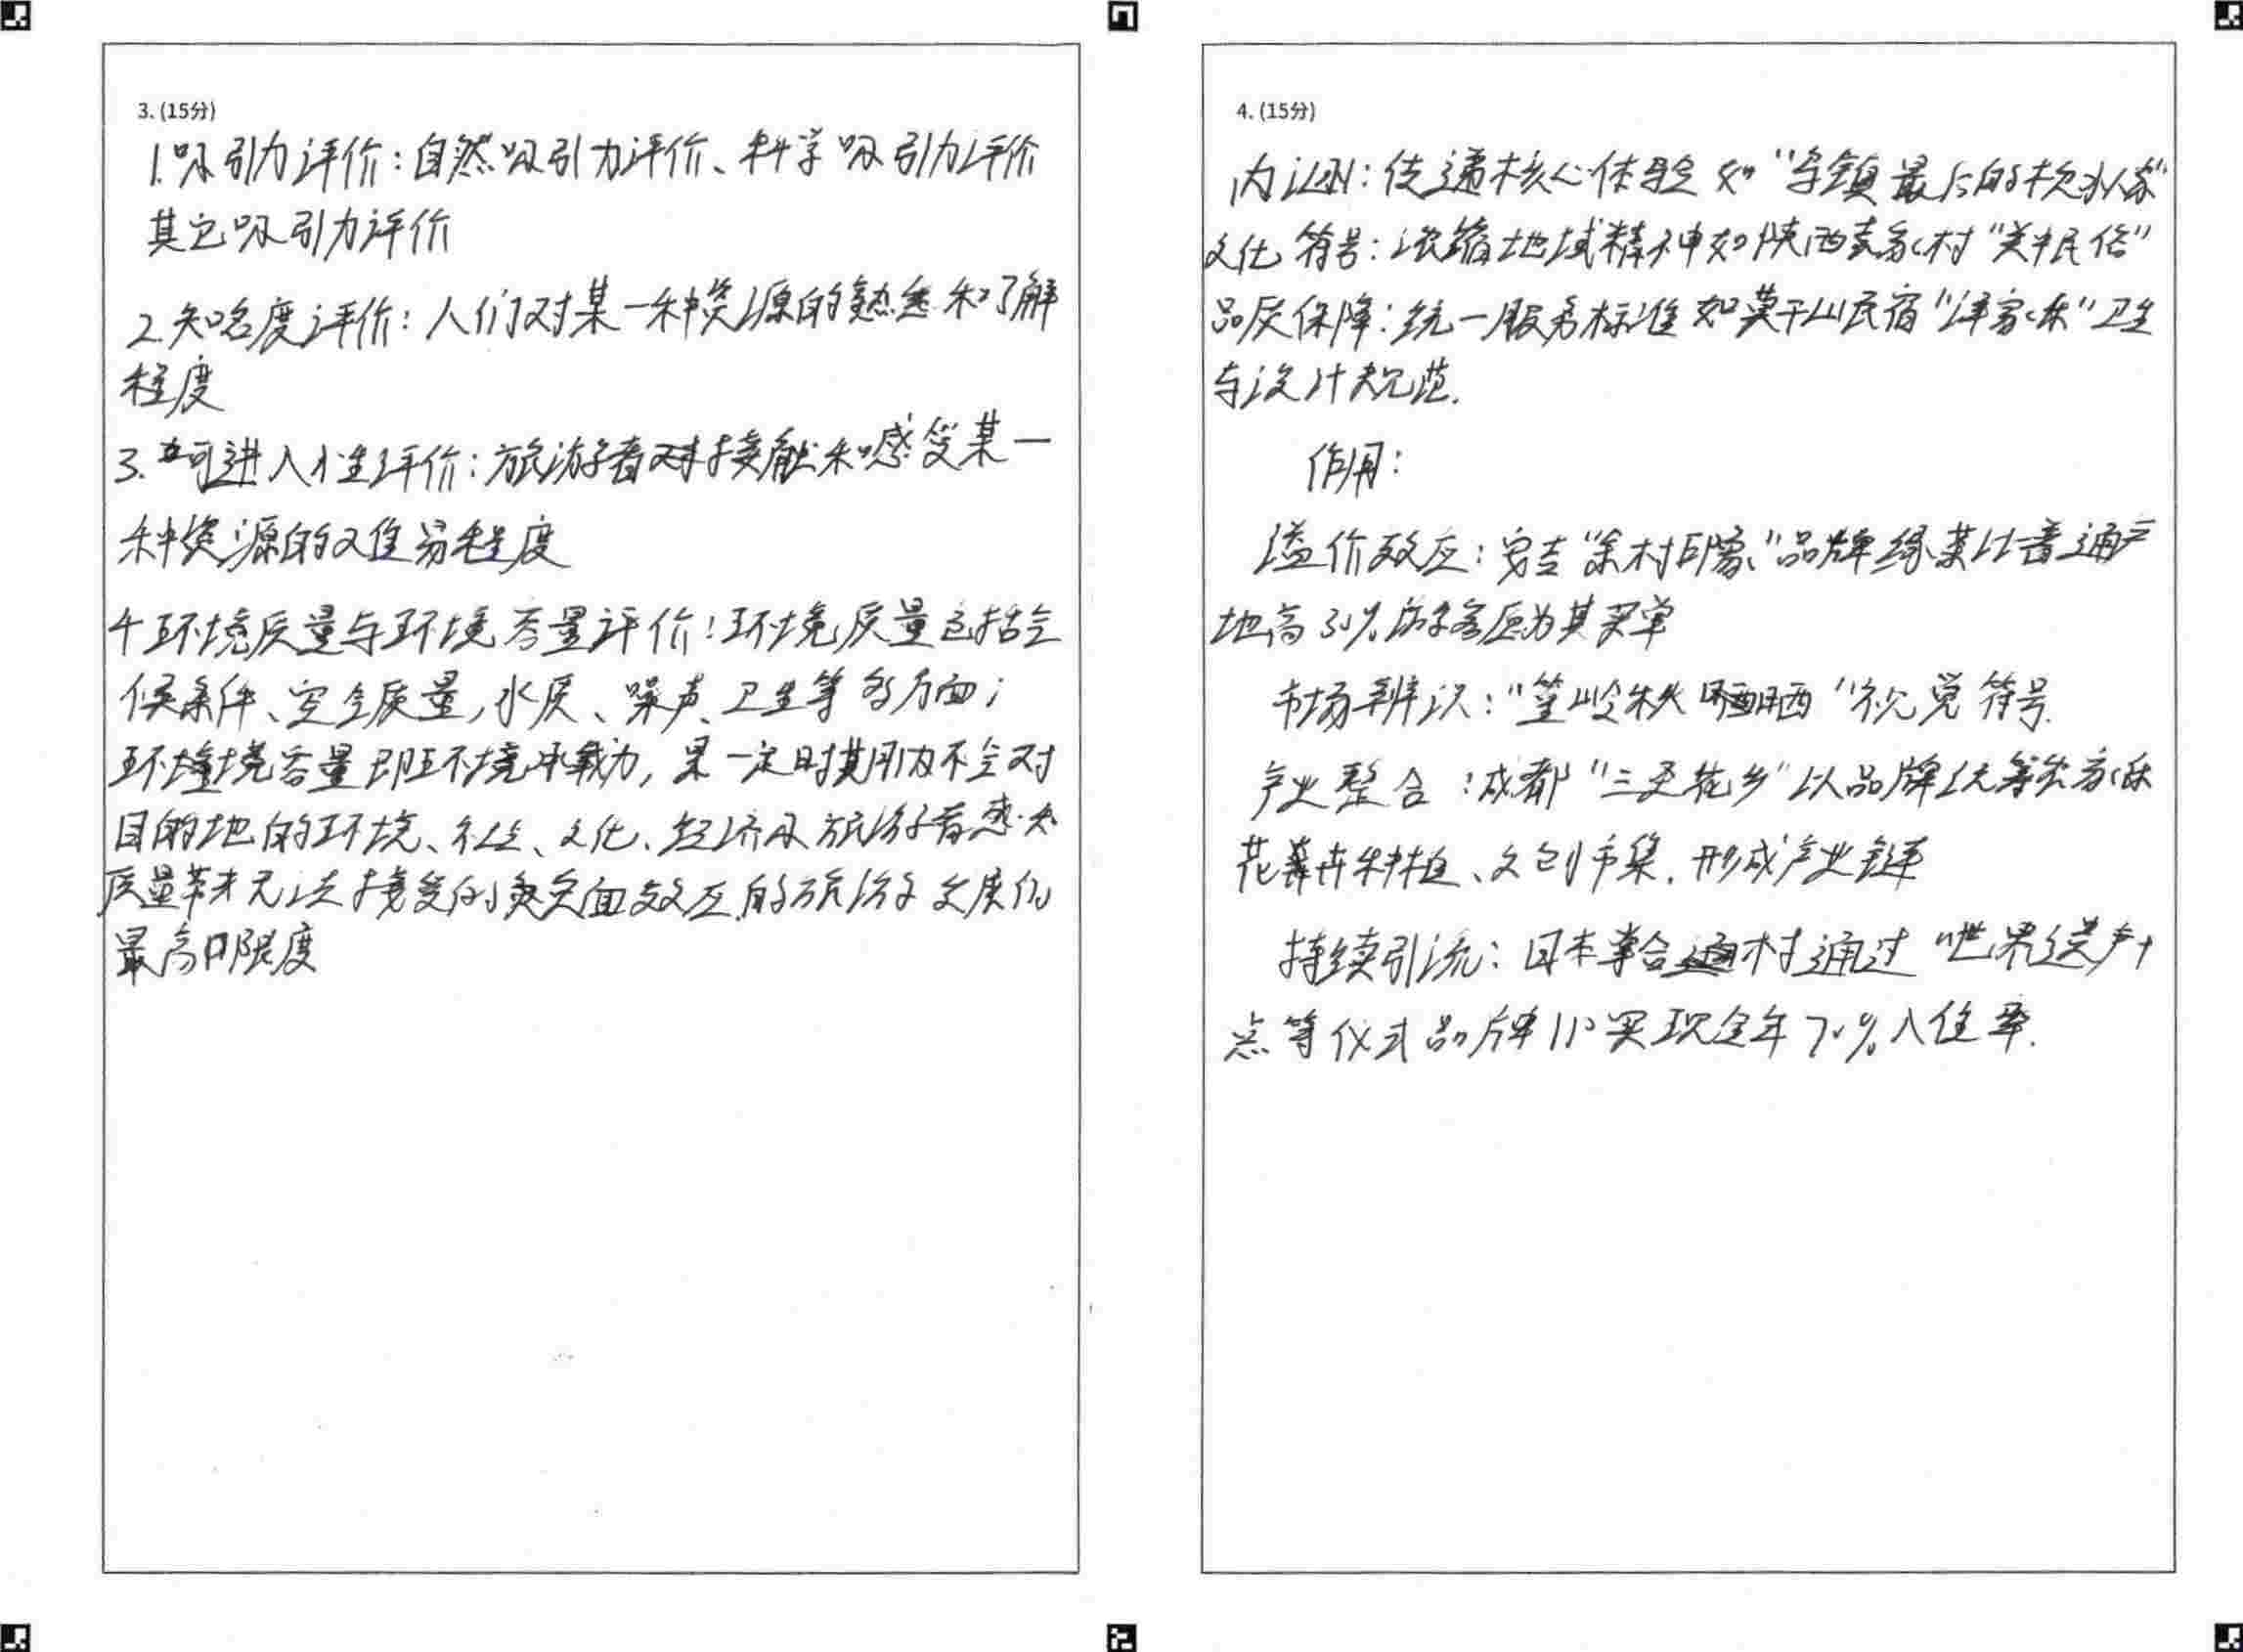 3. (15分)
1.吸引力评价:自然吸引力评价、科学吸引力评价
其它吸引力评价
2.知名度评价:人们对某一种资源的熟悉和了解
程度
3.可进入性评价:旅游者对接触和感受某一
种资源的难易程度
4环境质量与环境容量评价:环境质量包括气
候条件、空气质量,水质、噪声、卫生等多方面;
环境容量即环境承载力,某一定时期内不会对
目的地的环境、社会、文化、经济及旅游者感知
质量带来无法接受的负面效应的旅游发展的
最高限度
4. (15分)
内涵:传递核心体验如"乌镇最后的枕水人家"
文化符号:浓缩地域精神如陕西袁家村"关中民俗"
品质保障:统一服务标准如莫干山民宿"洋家乐"卫生
与设计规范.
作用:
溢价效应:安吉"余村印象"品牌绿茶比普通产
地高30%游客愿为其买单
市场辨识:"篁岭秋晒"视觉符号.
产业整合:成都"三圣花乡"以品牌统筹农家乐
花卉种植、文创市集.形成产业链
持续引流:日本掌合村通过"世界遗产+
点等仪式品牌IP实现全年70%入住率.